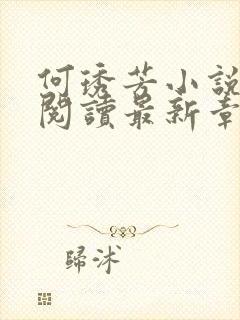 何琇芳小說
閱讀最新章
歸沭